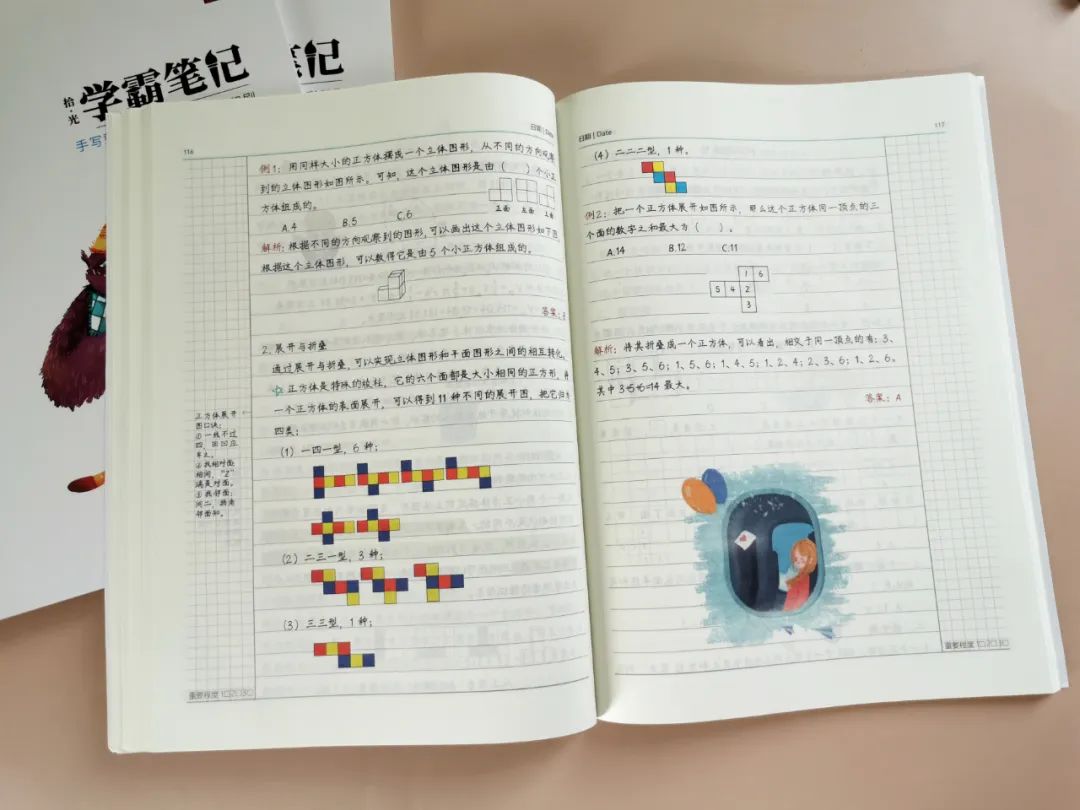 学霸笔记
拾·光
手写
笔记
116
日期 | Date
例1: 用同样大小的正方体摆成一个立体图形，从不同的方向观察
到的立体图形如图所示。可知，这个立体图形是由（ ）个小正
方体组成的。
正面 左面 上面
A.4 B.5 C.6
解析: 根据不同的方向观察到的图形，可以画出这个立体图形如下图
根据这个立体图形，可以数得它是由5个小正方体组成的。
答案:
2. 展开与折叠
通过展开与折叠，可以实现立体图形和平面图形之间的相互转化。
☆正方体是特殊的棱柱，它的六个面都是大小相同的正方形，将
一个正方体的表面展开，可以得到11种不同的展开图，把它归为
四类:
正方体展开
图口诀:
①一线不过
四，田凹应
弃之。
②找相对面:
相间，“Z”
端是对面。
③找邻面:
间二、拐角
邻面知。
(1) 一四一型，6种;
(2) 二三一型，3种;
(3) 三三型，1种;
重要程度 1□2□3□
日期 | Date
117
(4) 二二二型，1种。
例2: 把一个正方体展开如图所示，那么这个正方体同一顶点的三
个面的数字之和最大为（ ）。
A.14 B.12 C.11
1 6
5 4 2
3
解析: 将其折叠成一个正方体，可以看出，相交于同一顶点的有: 3、
4、5; 3、5、6; 1、5、6; 1、4、5; 1、2、4; 2、3、6; 1、2、6。
其中3+5+6=14最大。
答案: A
重要程度 1□2□3□